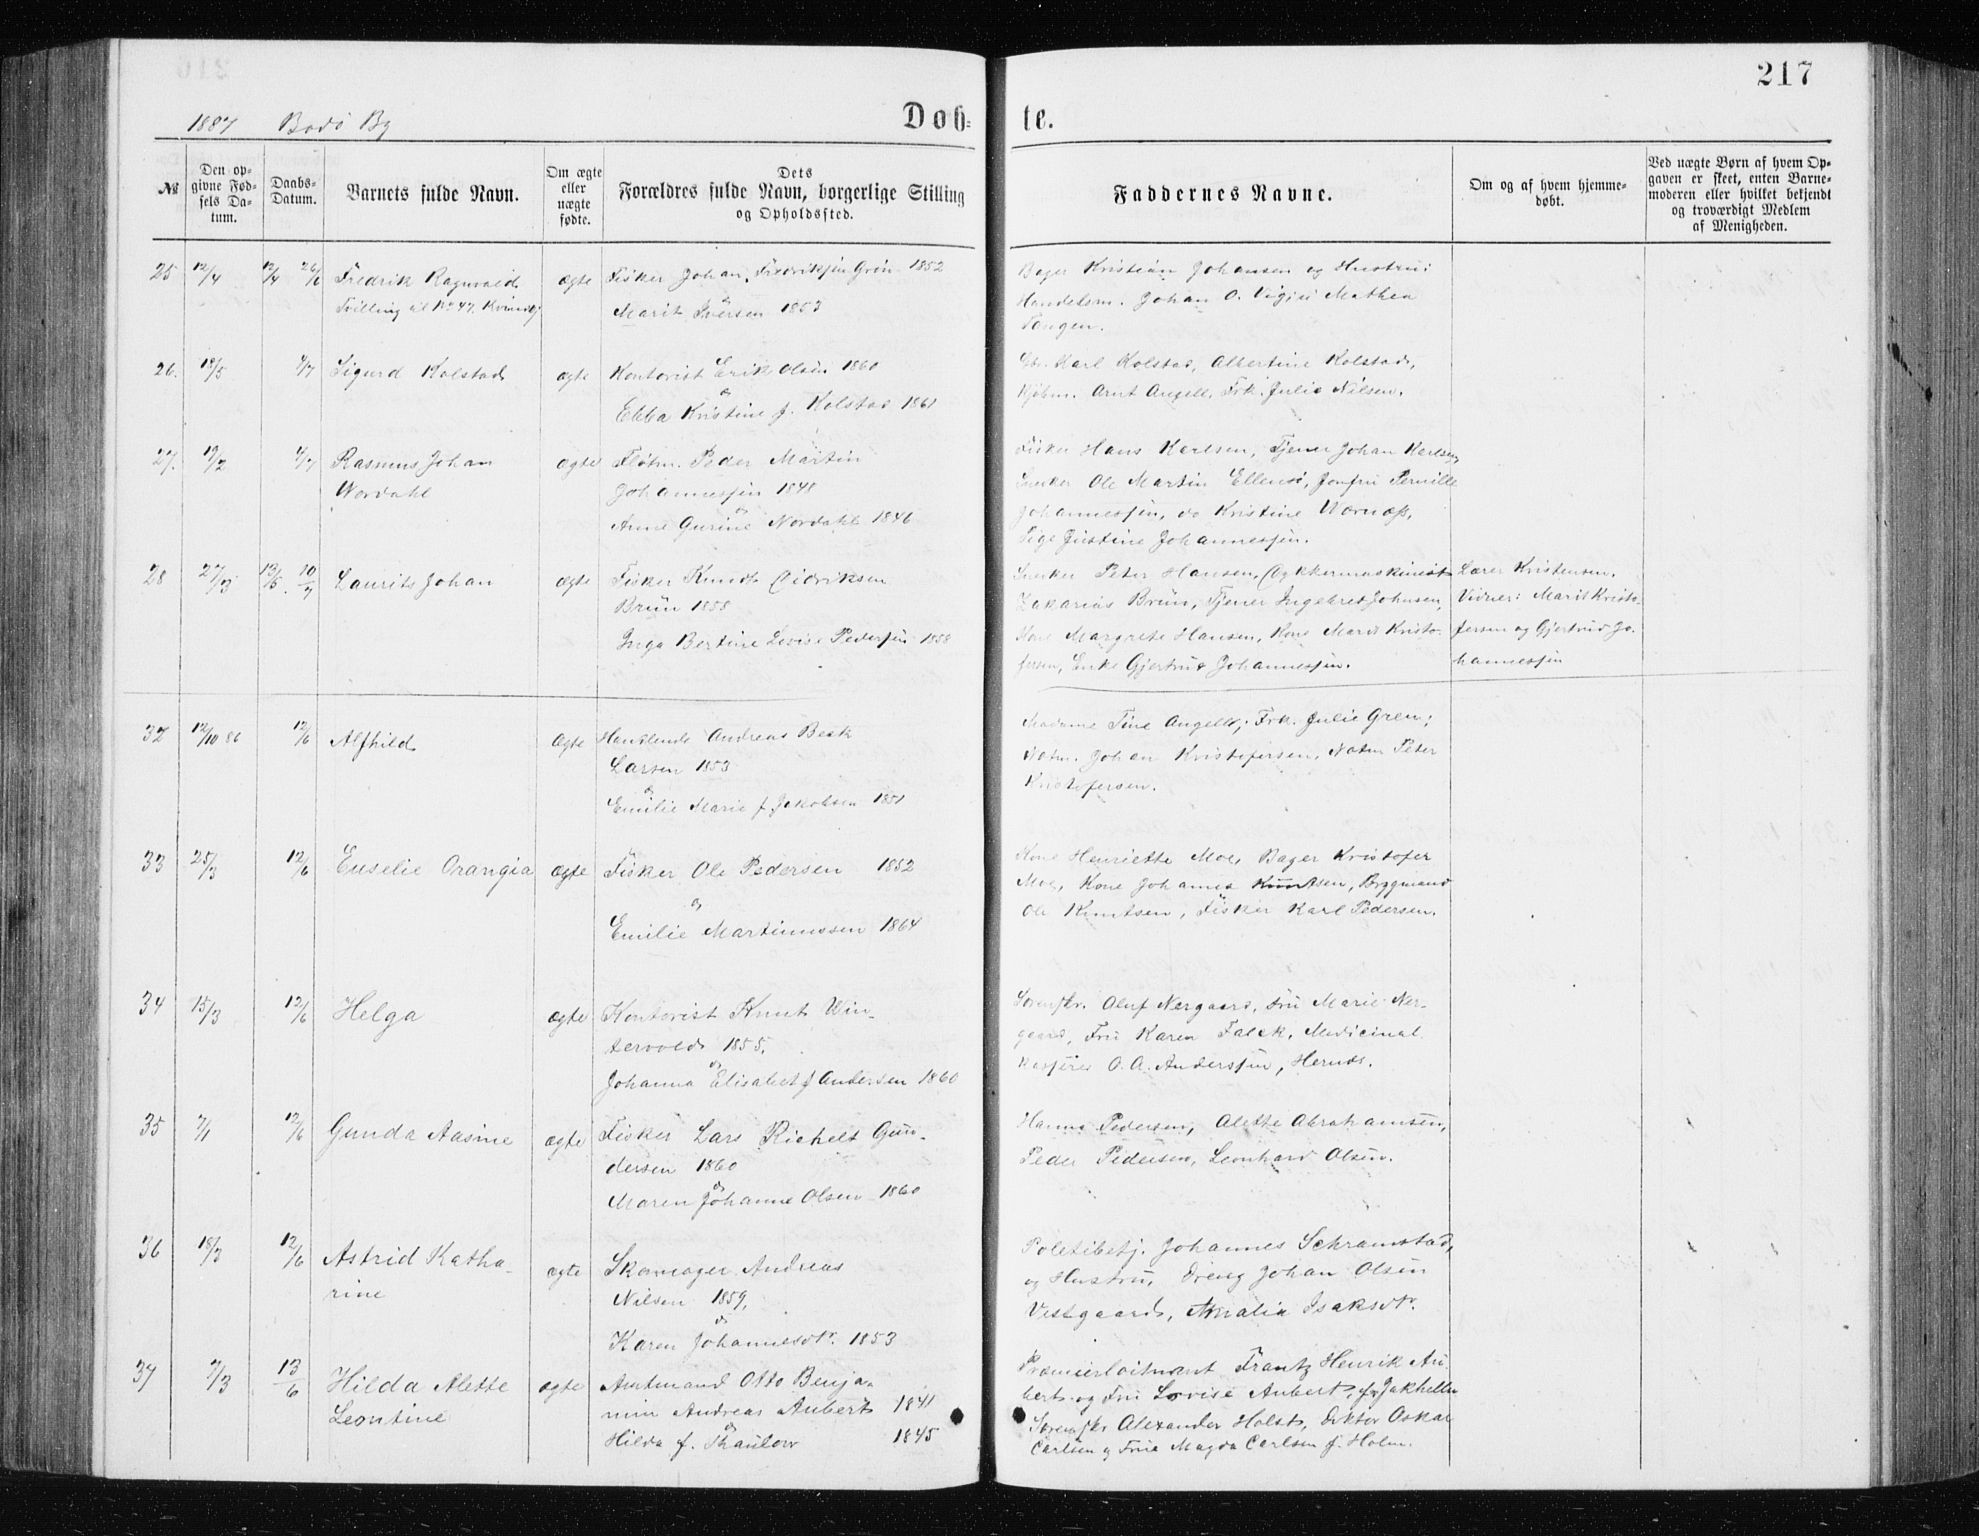 217
1887 Bodö By
Döb- te.
№
Den op-
givne Fød-
sels Da-
tum.
Daabs-
Datum.
Barnets fulde Navn.
Om ægte
eller
uægte
fødte.
Dets
Forældres fulde Navn, borgerlige Stilling
og Opholdssted.
Faddernes Navne.
Om og af hvem hjemme-
døbt.
Ved uægte Børn af hvem Op-
gaven er skeet, enten Barne-
moderen eller hvilket bekjendt
og troværdigt Medlem
af Menigheden.
25 12/4 12/4 26/6 Fredrik Ragnvald ægte Fisker Johan Fredriksen Grön 1852
Tvilling til No 47. Kvindkj
og
Marit Iversen 1853
Bager Kristian Johansen og Hustru;
Handelsm. Johan O. Mathea
Tangen.
26. 18/5 4/7 Sigurd Kolstad ægte Kontorist Erik Olsen 1860
og
Ebba Kristine f. Kolstad 1861
Karl Kolstad, Albertine Kolstad,
Kjöbm. Arnt Angell, Frk. Julie Nilsen.
27. 19/2 4/7 Rasmus Johan ægte Flötm. Peder Martin
Nordahl
Johannessen 1848
og
Anne Gurine Nordahl 1846
Fisker Hans Karlsen, Tjener Johan Karlsen,
Snerker Ole Martin Ellens, Jomfru Pernille
Johannessen, do Kristine
Pige Justine Johannessen.
28 27/3 13/5. 10/7 Laurits Johan ægte Fisker Knudt Didriksen
Brün 1858
Inga Bertine Lovise Pedersen 1858
Snerker Peter Hansen, Dykkermaskinist
Zakarias Brün, Tjener Ingebret Johnsen,
Kone Margrete Hansen, Kone Marit Kristo-
fersen, Enke Gjertrud Johannessen.
Lærer Kristensen.
Vidner: Marit Kristo-
fersen og Gjertrud Jo-
hannessen
32 12/10 86 12/6 Alfhild ægte Handlende Andreas Beck
Larsen 1853
og
Emilie Marie f. Jakobsen 1851
Madame Tine Angell; Frk. Julie Gren;
Notm. Johan Kristofersen, Notm Peter
Kristofersen.
33 25/3 12/6 Euselie Orangia ægte Fisker Ole Pedersen 1852
og
Emilie Martinussen 1864
Kone Henriette Moe, Bager Kristofer
Moe, Kone Johanna Knutsen, Bryggmand
Ole Knutsen, Fisker Karl Pedersen.
34 15/3 12/6 Helga ægte Kontorist Knut Win-
tervold 1855.
og
Johanna Elisabet f Andersen 1860
Sorenskr. Oluf Nergaard, Fru Marie Ner-
gaard, Fru Karen Falck, Medicinal
kasserer O. A. Anderssen, Hernds.
35 7/1 12/6 Gunda Aasine ægte Fisker Lars Richelt Gun-
dersen 1860
og
Maren Johanne Olsen 1860
Hanna Pedersen, Alette Abrahamsen,
Peder Pedersen, Leonhard Olsen.
36 18/3 12/6 Astrid Katha-
rine
ægte Skomager Andreas
Nilsen 1859,
og
Karen Johannesdtr. 1853
Politibetj. Johannes Schramstad,
og Hustru, Dreng Johan Olsen
Vestgaard, Amalia Isaksdtr.
37 7/3 13/6 Hilda Alette
Leontine
ægte Amtmand Otto Benja-
min Andreas Aubert 1841
og
Hilda f. Thaulow 1845
Præmierløitnant Frantz Henrik Au-
bert og Fru Lovise Aubert, f Jakhelln
Sorenskr Alexander Holst, Doktor Oskar
Carlsen og Frue Magda Carlsen f. Holm.